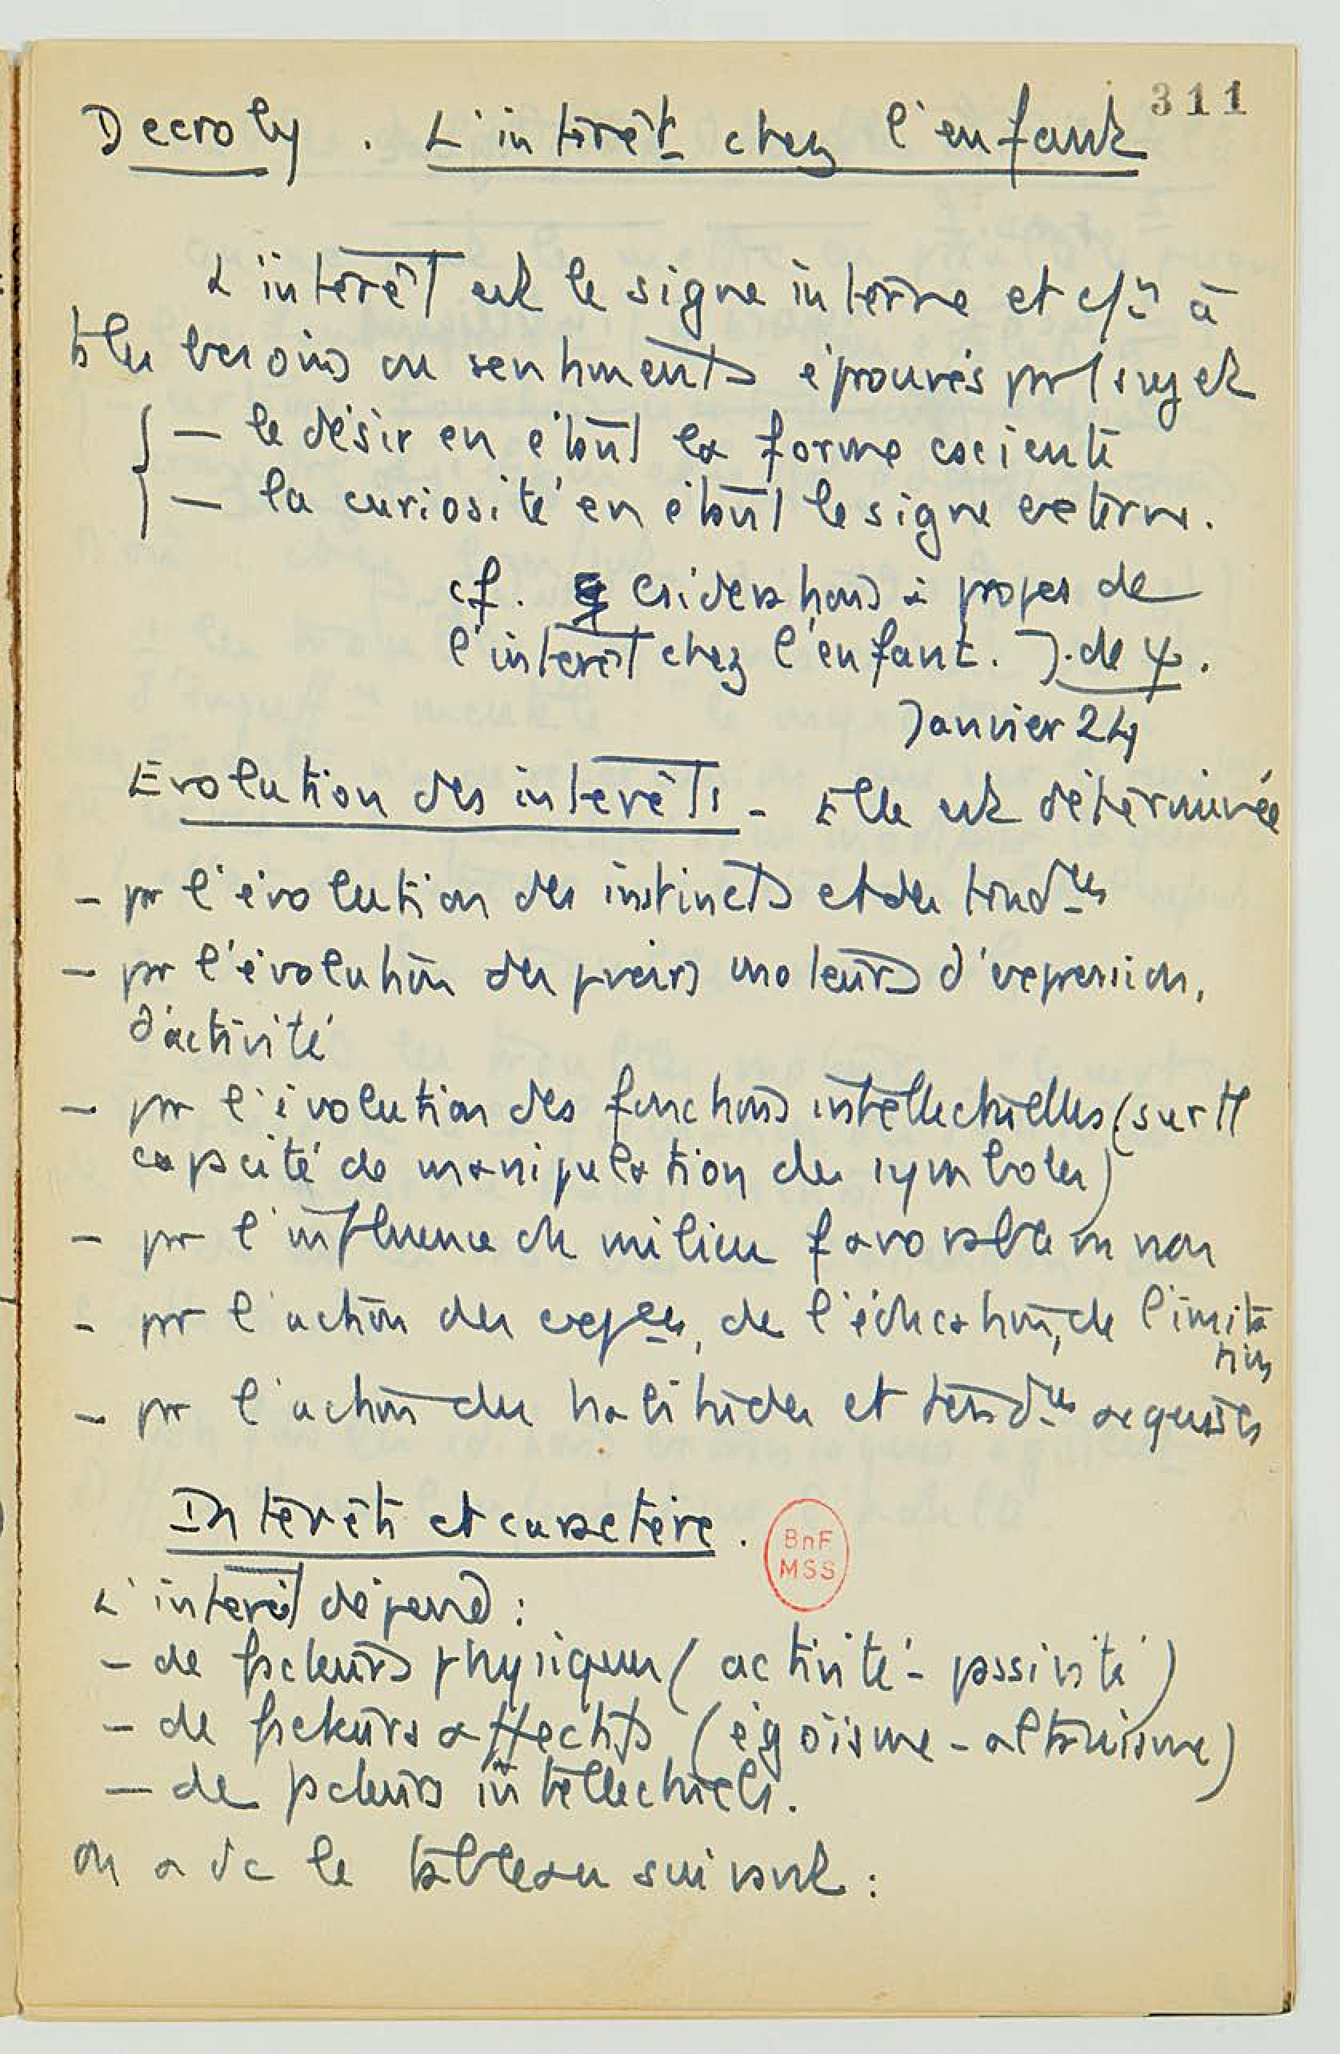 311
Decroly . L'intérêt chez l'enfant
L'intérêt est le signe interne et cn à
ts les besoins ou sentiments éprouvés pr l sujet
- le désir en étant la forme csciente
- la curiosité en étant le signe externe.
cf. Csiderations à propos de
l'intérêt chez l'enfant. J. de ψ.
Janvier 24
Evolution des intérêts - Elle est déterminée
- pr l'évolution des instincts et des tendces
- pr l'évolution des moteurs d'expression,
d'activité
- pr l'évolution des fonctions intellectuelles (surtt
capacité de manipulation des symboles)
- pr l'influence du milieu favorable ou non
- pr l'action des expces, de l'éducation, de l'imita
tion
- pr l'action des habitudes et tendces acquises
Intérêts et caractère .
BnF
MSS
L'intérêt dépend :
- de facteurs physiques (activité - passivité)
- de facteurs affectifs (égoïsme - altruisme)
- de facteurs intellectuels.
on a dc le tableau suivant :